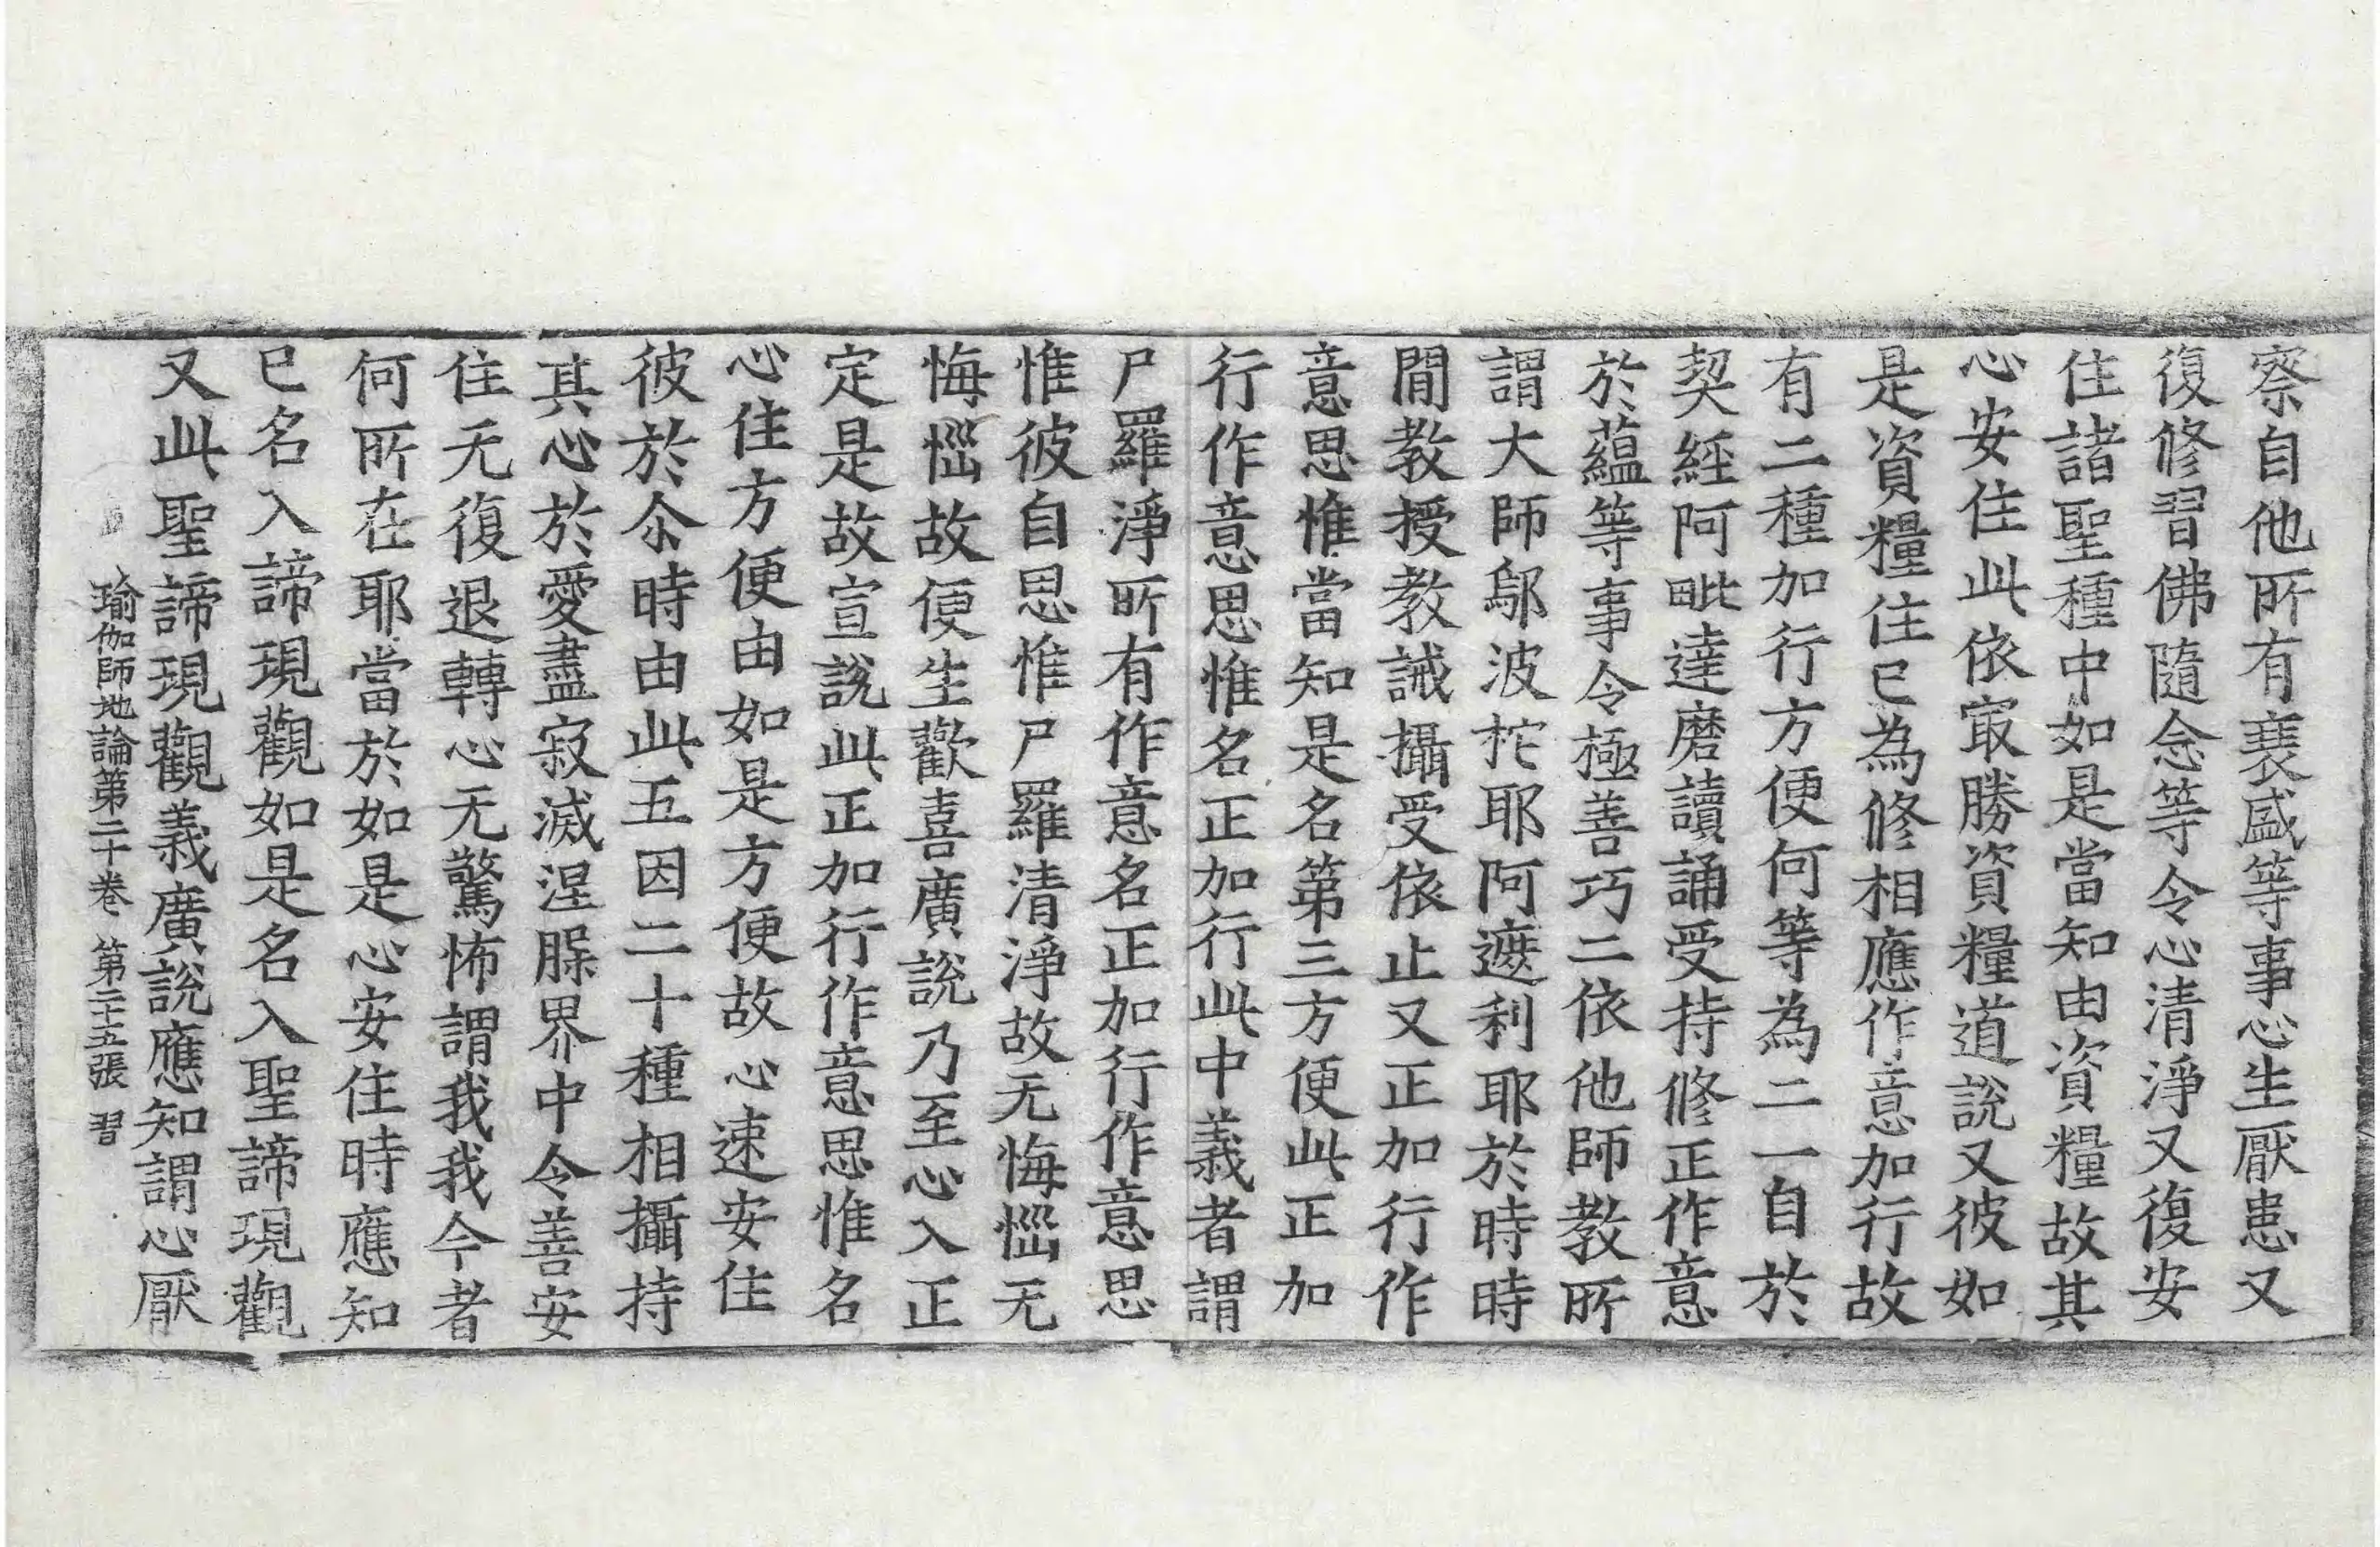 察自他所有衰盛等事心生厭患又
復修習佛隨念等令心清淨又復安
住諸聖種中如是當知由資糧故其
心安住此依㝡勝資糧道說又彼如
是資糧住已為修相應作意加行故
有二種加行方便何等為二一自於
契經阿毗達磨讀誦受持修正作意
於蘊等事令極善巧二依他師教所
謂大師鄔波柁耶阿遮利耶於時時
閒教授教誡攝受依止又正加行作
意思惟當知是名第三方便此正加
行作意思惟名正加行此中義者謂
尸羅淨所有作意名正加行作意思
惟彼自思惟尸羅清淨故无悔惱无
悔惱故便生歡喜廣說乃至心入正
定是故宣說此正加行作意思惟名
心住方便由如是方便故心速安住
彼於尒時由此五因二十種相攝持
其心於愛盡寂滅涅槃界中令善安
住无復退轉心无驚怖謂我我今者
何所在耶當於如是心安住時應知
已名入諦現觀如是名入聖諦現觀
又此聖諦現觀義廣說應知謂心厭
瑜伽師地論第二十卷 第二十五張 習